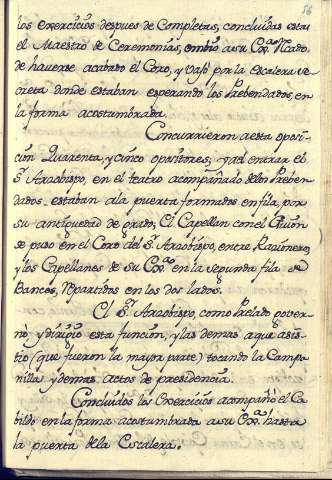 56
los exercicios despues de Completas, concluidas estas
el Maestro de Ceremonias, embio a su Exª. Recado,
de haverse acabado el Coro, y vajó por la escalera se-
creta donde estaban esperando los Prebendados, en
la forma acostumbrada.
Concurrieron a esta oposi-
cion Quarenta, y cinco opositores; y al entrar el
Sr. Arzobispo, en el teatro acompañado de los Preben-
dados, estaban a la puerta formados en fila, por
su antiguedad de grado, El Capellan con el Guion
se puso en el Coro del Sr. Arzobispo, entre Racioneros,
y los Capellanes de su Exª. en la segunda fila de
Bancos, repartidos en los dos lados.
El Sr. Arzobispo, como Prelado gover-
no, y dirigio esta funcion, y las demas a que asis-
tio (que fueron la mayor parte) tocando la Campa-
nilla, y demas actos de presidencia.
Concluidos los Exercicios acompañó el Ca-
bildo en la forma acostumbrada a su Exª. hasta
la puerta de la Escalera.